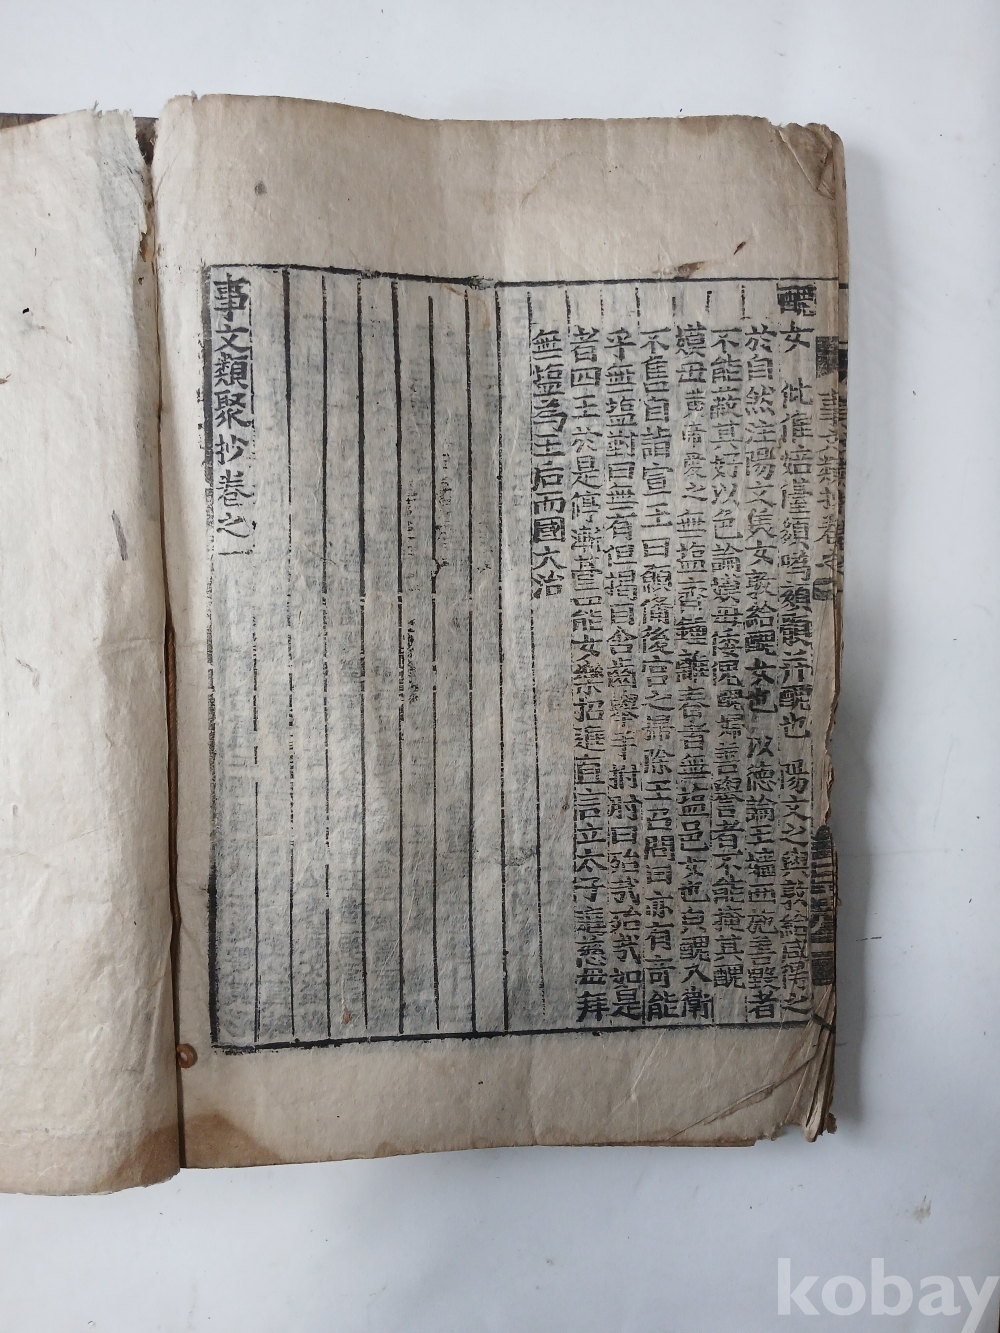 醜女 仳倠
醜也 陽文之與敦給咸得之
於自然注陽文美女敦給醜女也 以德論王嬙西施善毀者
不能蔽其好以色論嫫母倭傀醜婦善譽者不能掩其醜
嫫母黃帝愛之無塩齊鍾離春者無塩邑女也臼醜入衛
不售自詣宣王曰願俻後宮之掃除王召問曰亦有奇能
乎無塩對曰無有但揚目含齒擧手拊肘曰殆哉殆哉如是
者四王於是停漸臺罷女樂招進直言立太子進慈母拜
無塩爲王后而國大治
事文類聚抄卷之一
kobay